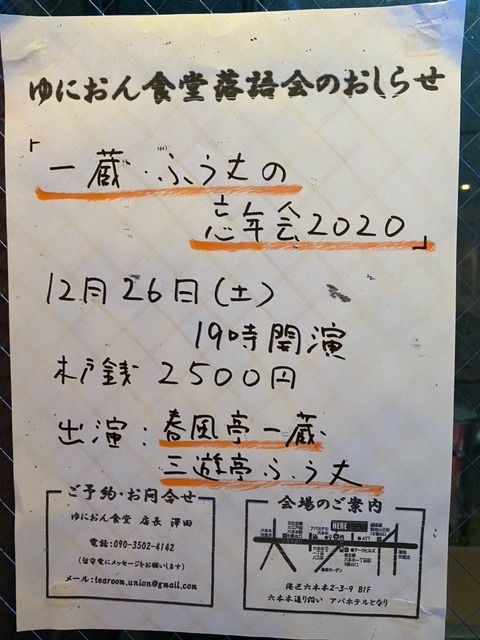 ゆにおん食堂落語会のおしらせ
「一蔵・ふう丈の
忘年会2020」
12月26日(土)
19時開演
木戸銭 2500円
出演:春風亭一蔵
三遊亭ふう丈
ご予約・お問合せ
ゆにおん食堂 店長 澤田
電話:090-3502-4142
(留守電にメッセージをお願いします)
メール:tearoom.union@gmail.com
会場のご案内
HERE
ATT
アークヒルズ
泉ガーデン
港区六本木2-3-9 B1F
六本木通り沿い アパホテルとなり